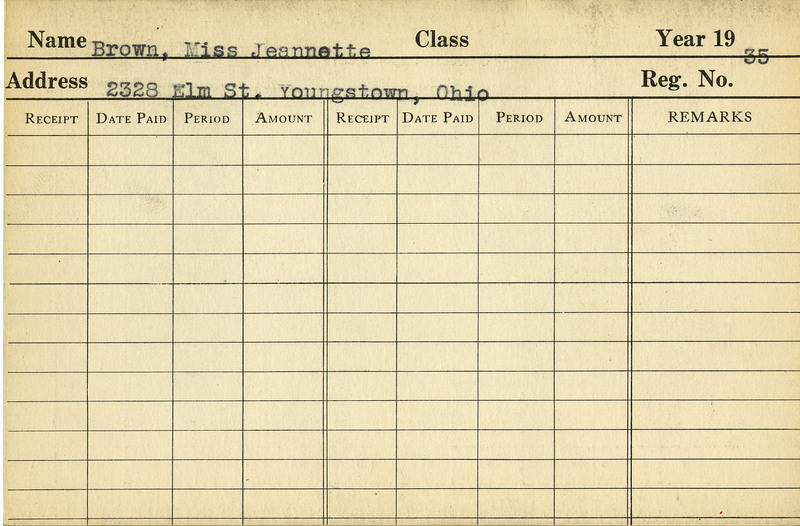 Name Brown, Miss Jeannette Class Year 19 35
Address 2328 Elm St. Youngstown, Ohio Reg. No.
RECEIPT DATE PAID PERIOD AMOUNT RECEIPT DATE PAID PERIOD AMOUNT REMARKS